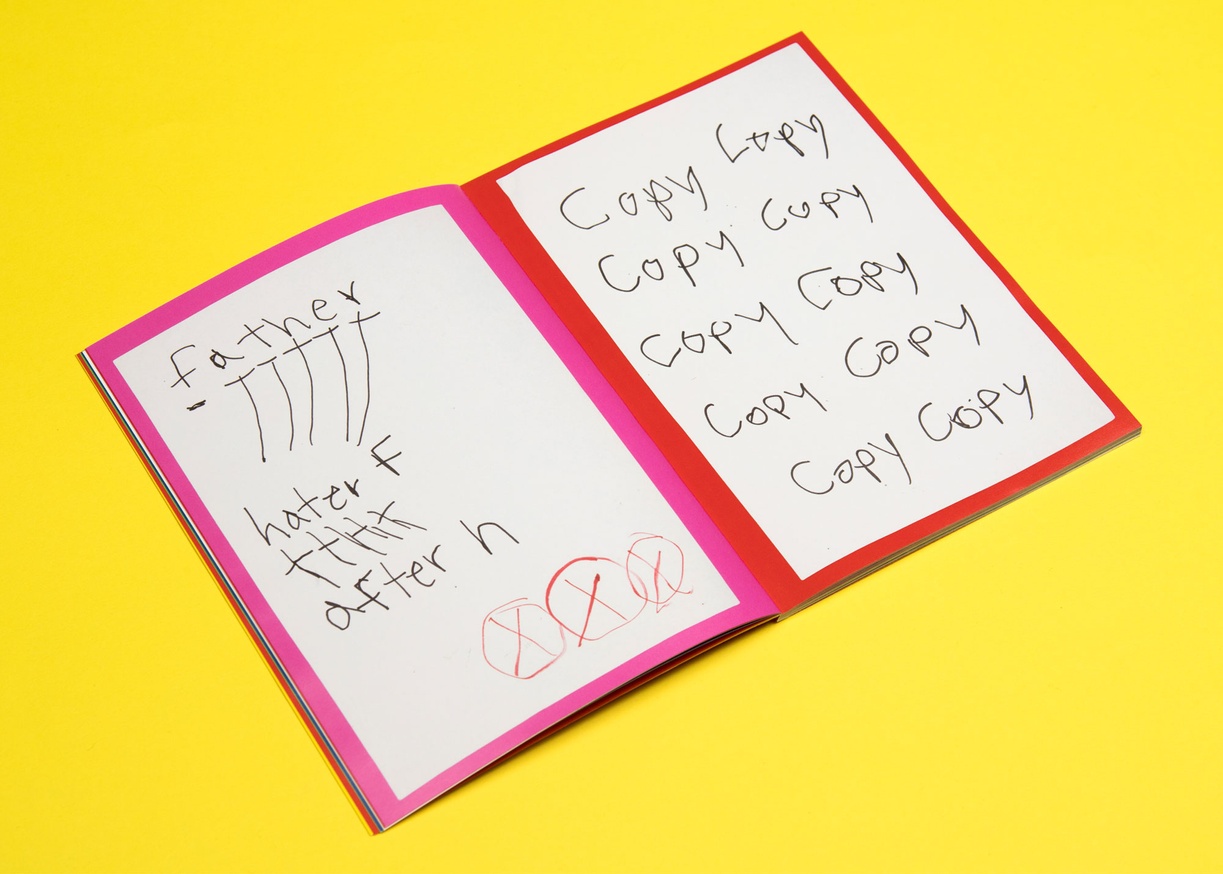 father
hater F
after h
X X X
Copy Copy
Copy Copy
Copy Copy
Copy Copy
Copy Copy